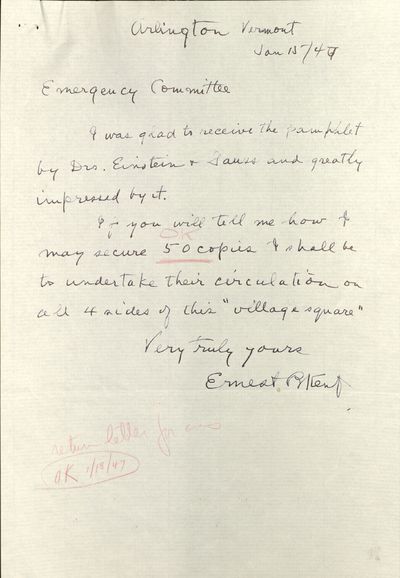 Arlington Vermont
Jan 15/47
Emergency Committee
I was glad to receive the pamphlet
by Drs. Einstein & and greatly
impressed by it.
If you will tell me how I
OK
may secure 50 copies I shall be
to undertake their circulation on
all 4 sides of this "village square"
Very truly yours
Ernest
return letter for
OK 1/18/47